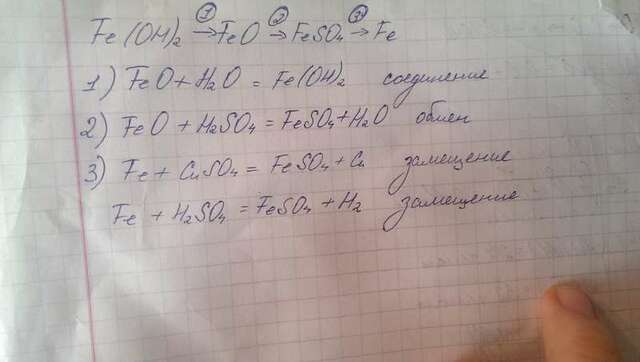 Fe(OH)₂ →① FeO →② FeSO₄ →③ Fe
1) FeO + H₂O = Fe(OH)₂ соединение
2) FeO + H₂SO₄ = FeSO₄ + H₂O обмен
3) Fe + CuSO₄ = FeSO₄ + Cu замещение
Fe + H₂SO₄ = FeSO₄ + H₂ замещение